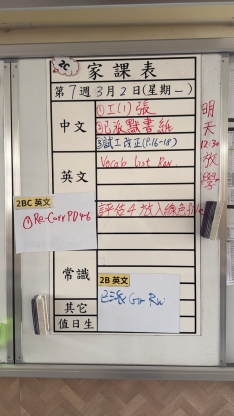 2C
家課表
第7週3月2日(星期一)
中文
①工(1)張
②已派默書紙
③試工改正(P.16-18)
英文
Vocab list Rw.
評估4放入綠色
2BC 英文
①Re-Corr PD4-6
常識
2B 英文
已派 Gr Rw
其它
值日生
明天12:30放學